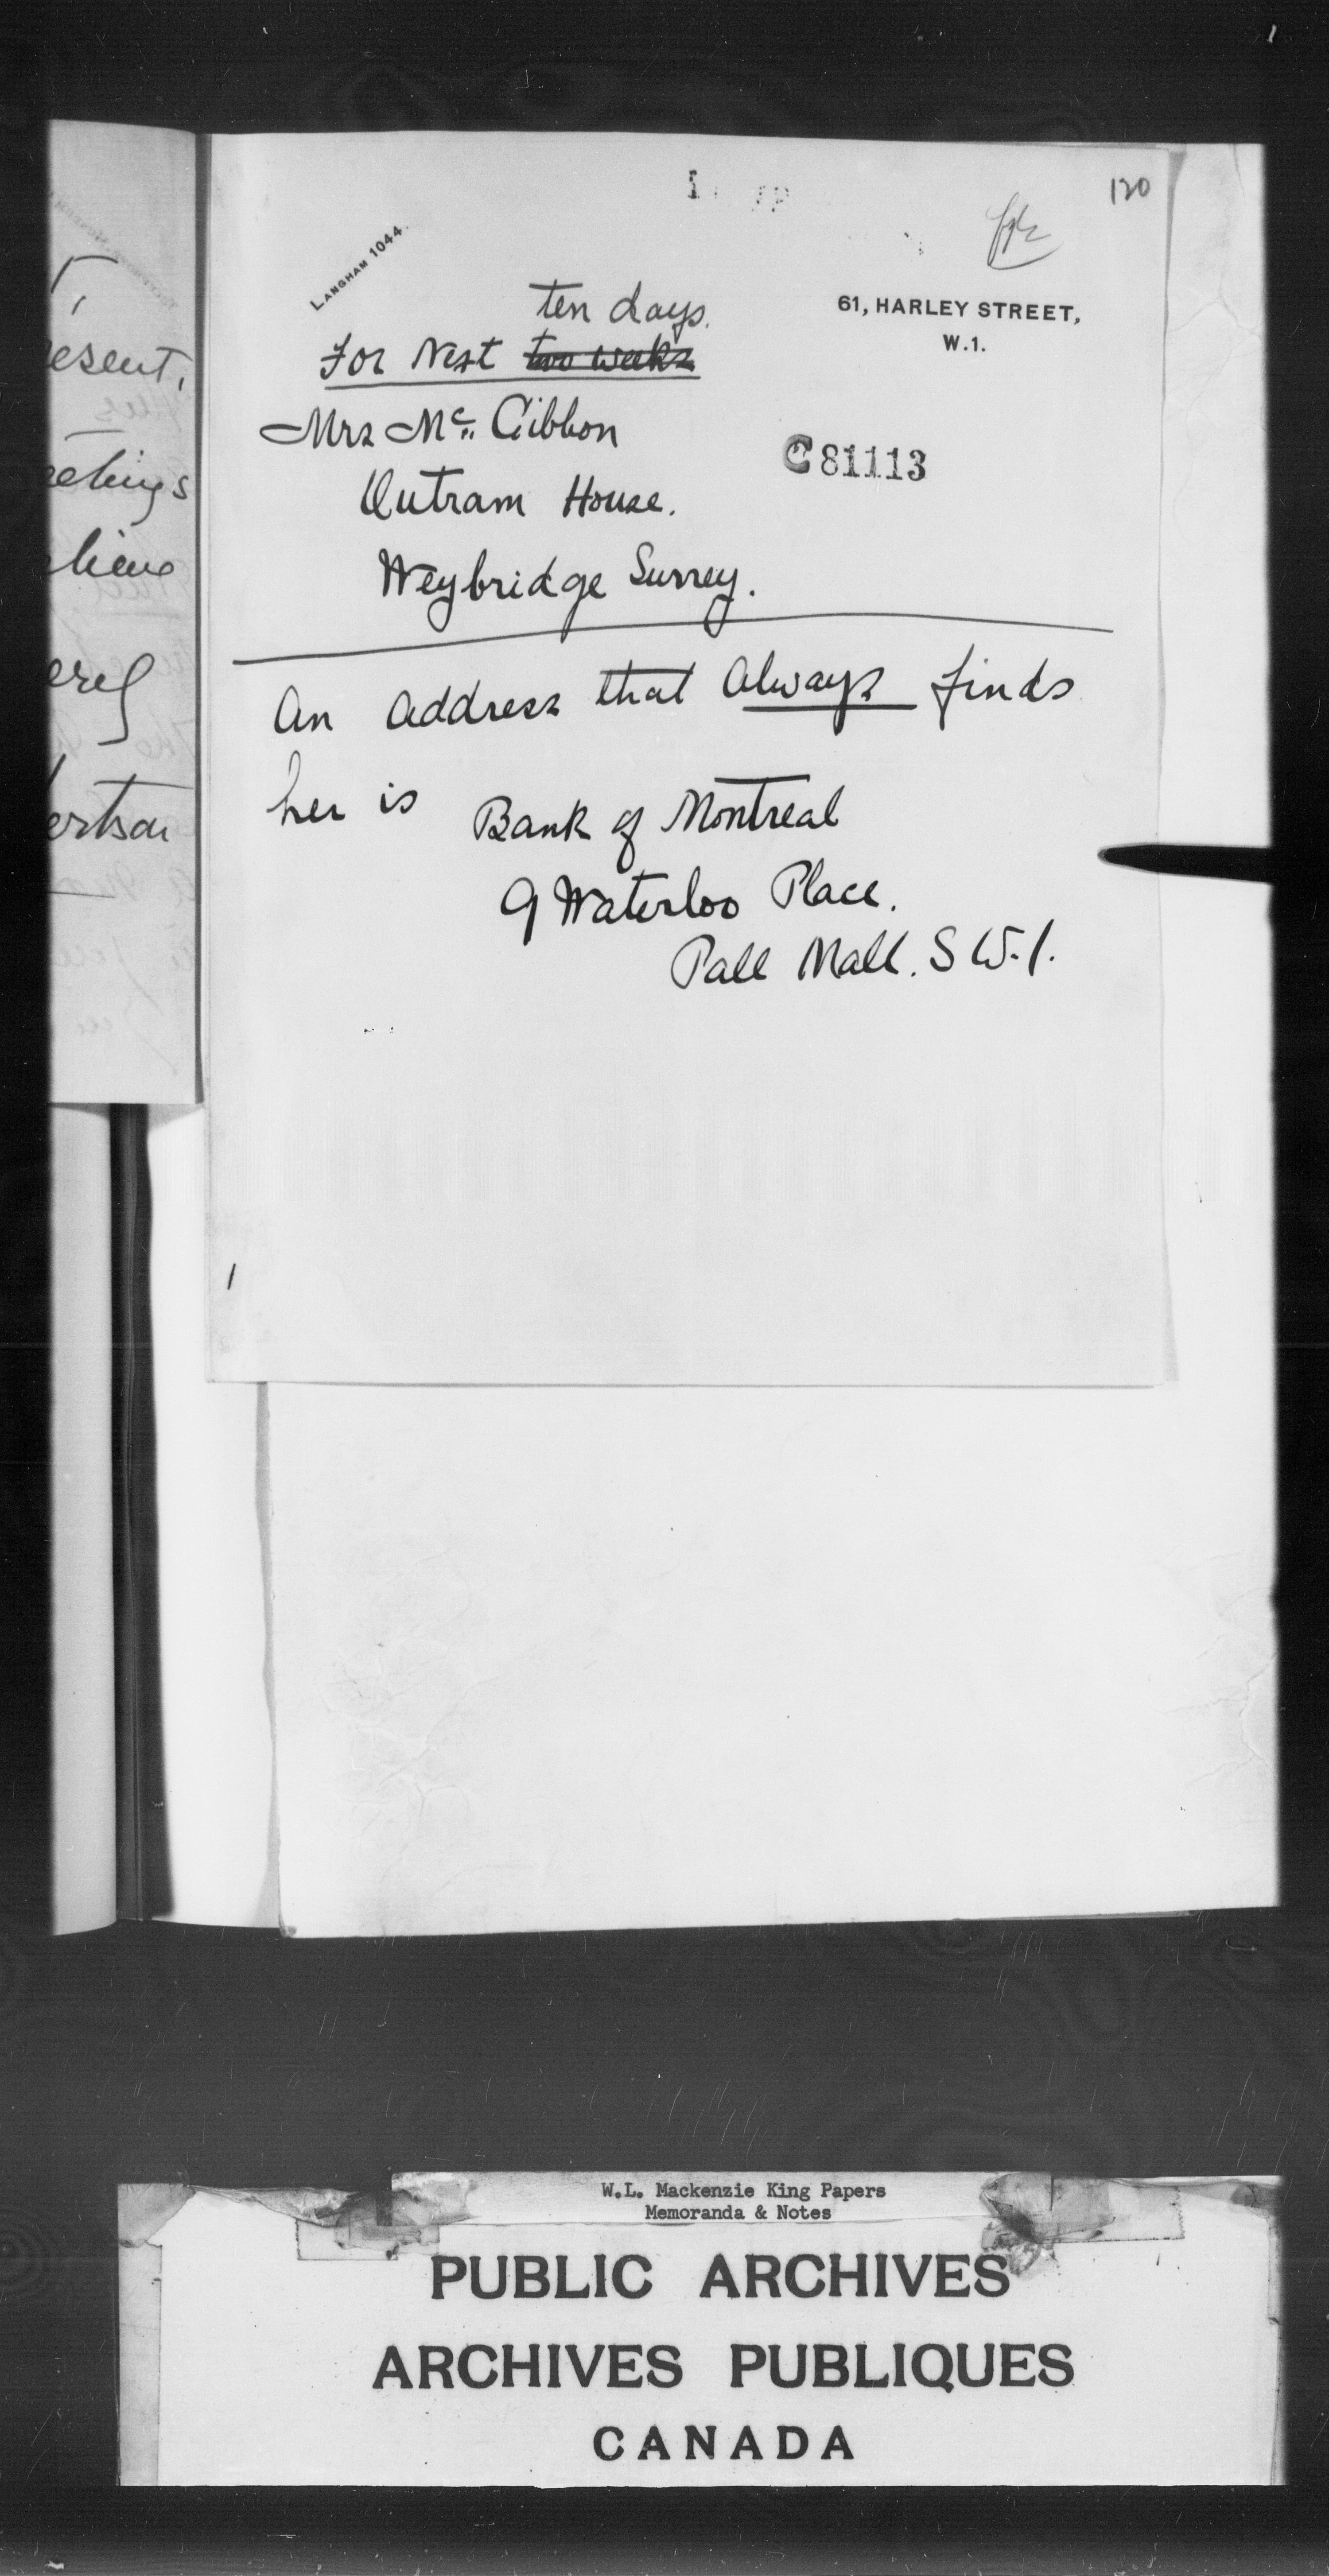 120
LANGHAM 1044.
61, HARLEY STREET,
W.1.
ten days.
For Next two weeks
Mrs Mc. Gibbon
C81113
Outram House.
Weybridge Surrey.
An address that always finds
her is
Bank of Montreal
9 Waterloo Place.
Pall Mall. S W.1.
W.L. Mackenzie King Papers
Memoranda & Notes
PUBLIC ARCHIVES
ARCHIVES PUBLIQUES
CANADA